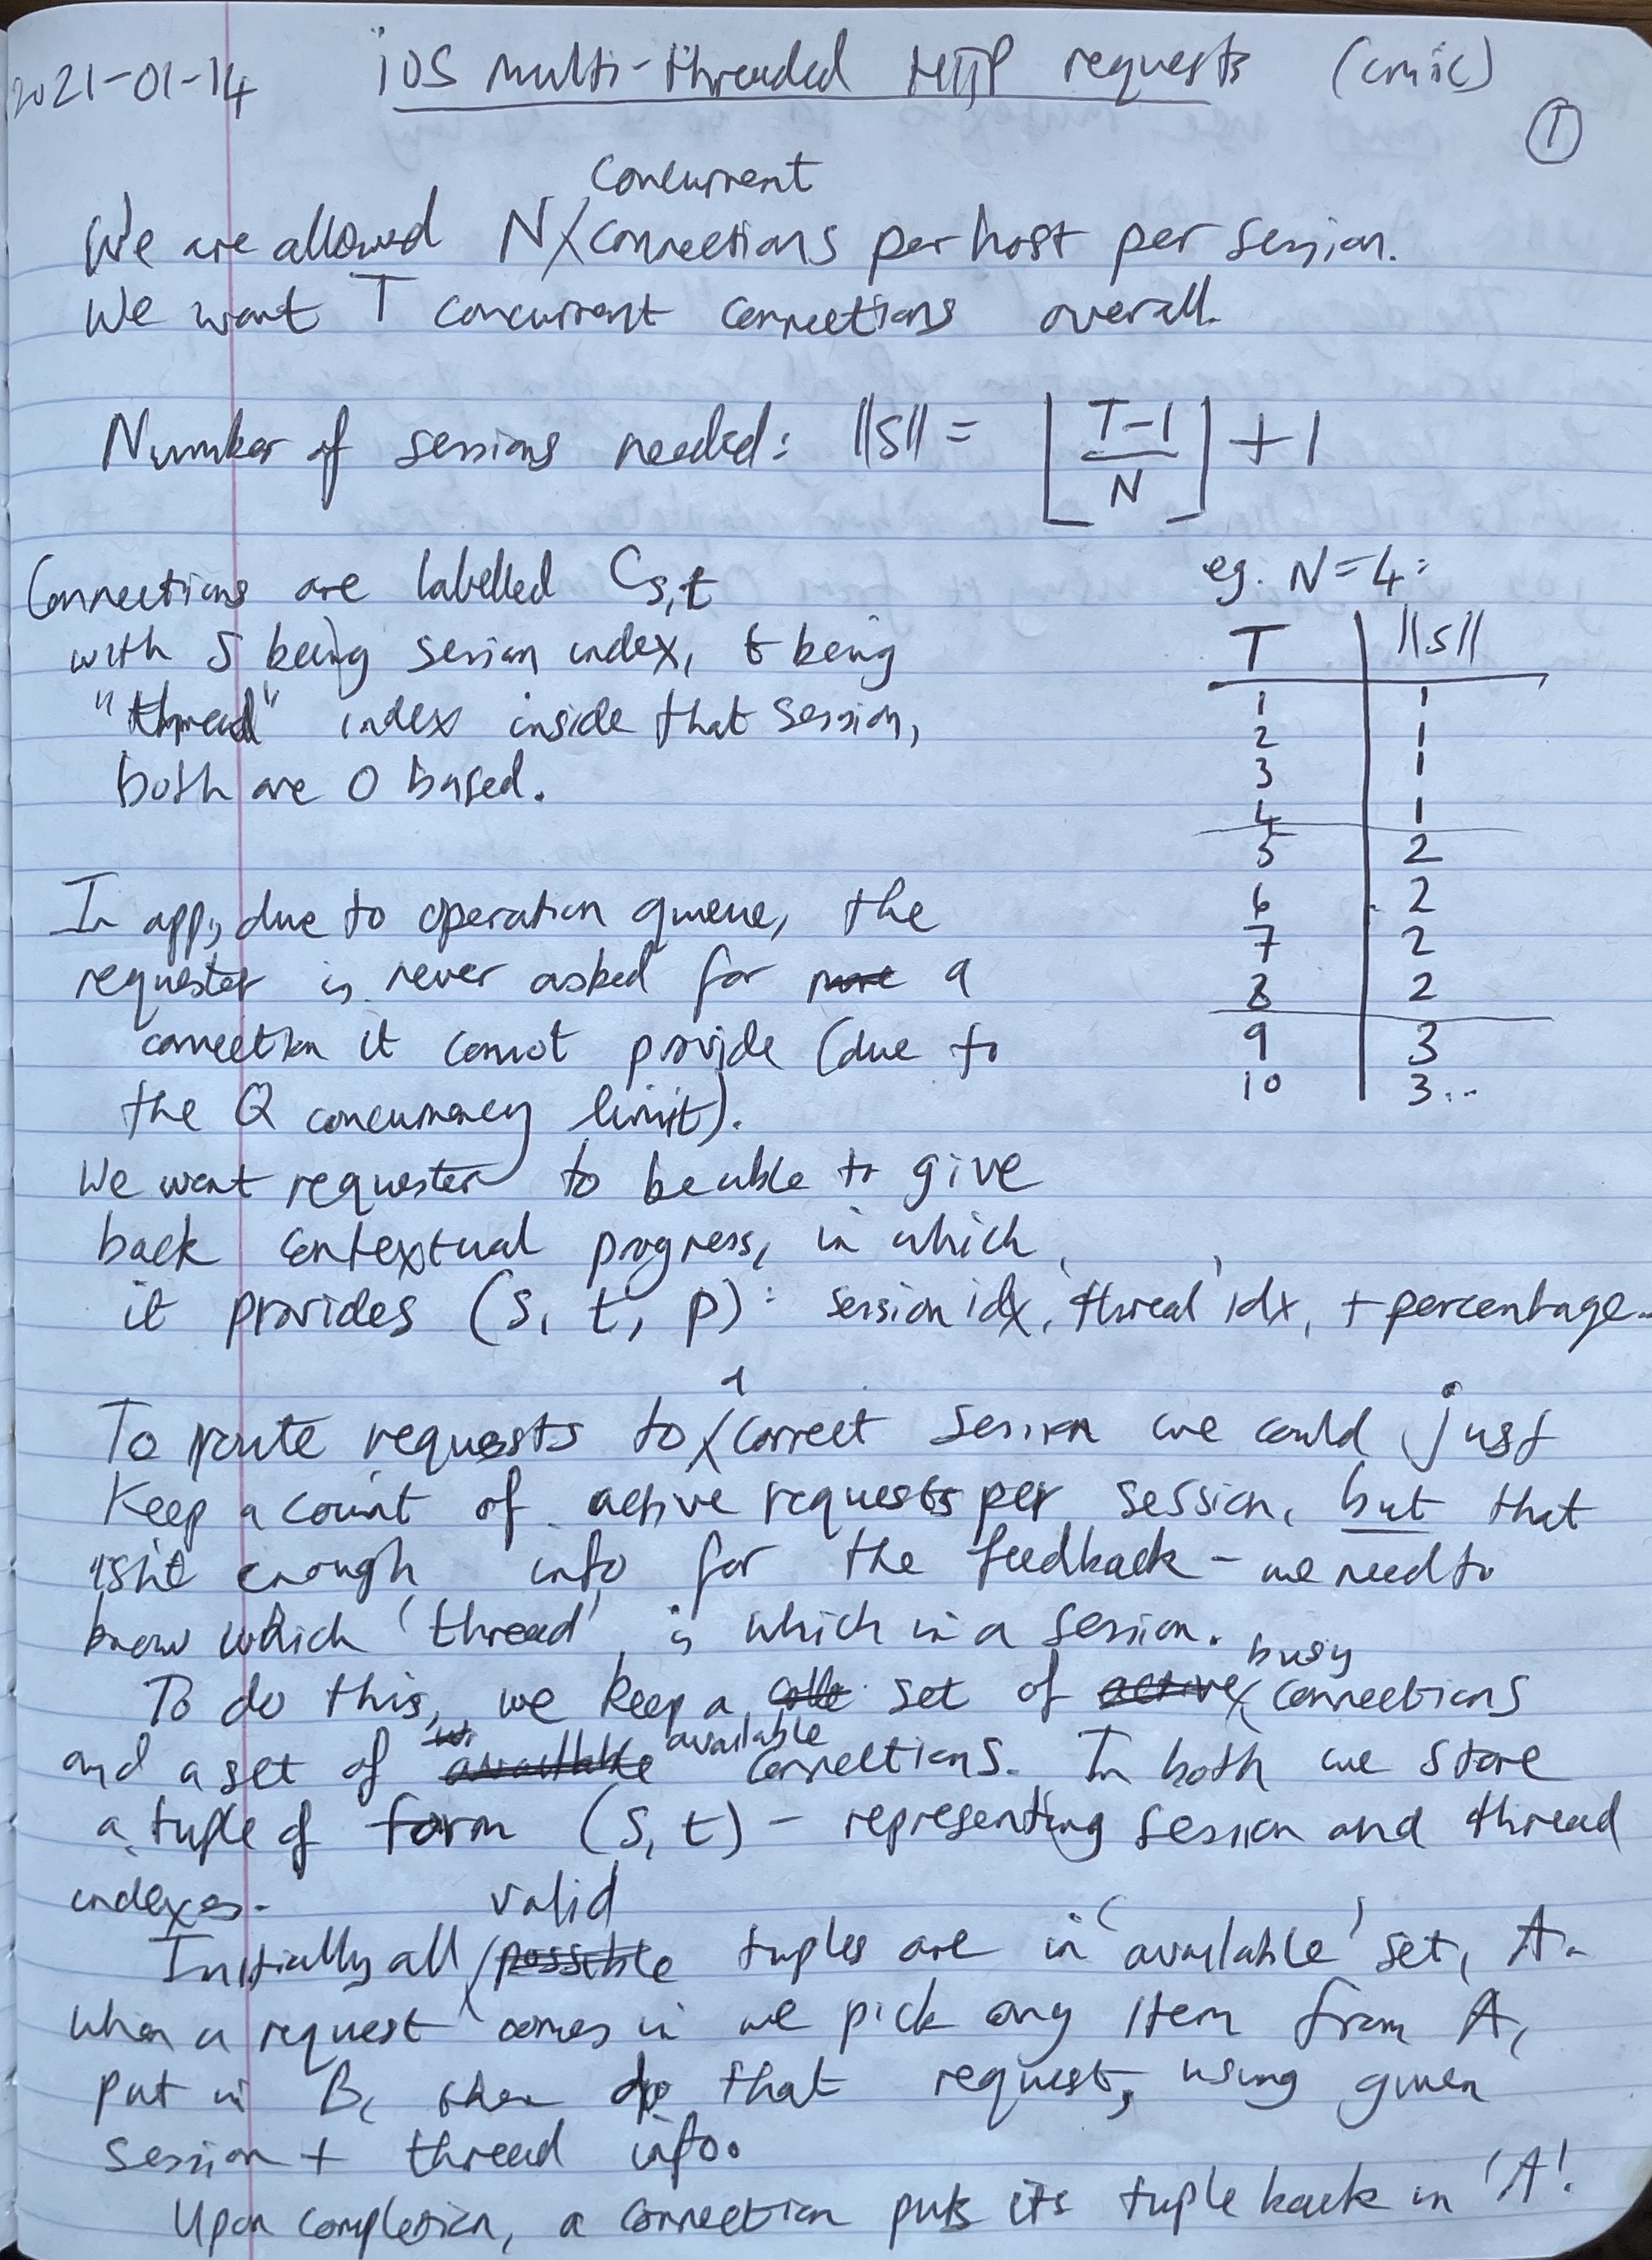 2021-01-14 iOS multi-threaded HTTP requests (cmic)
①
concurrent
We are allowed N connections per host per session.
We want T concurrent connections overall.
Number of sessions needed: ||S|| = ⌊(T-1)/N⌋ + 1
Connections are labelled C_s,t
with S being session index, t being
"thread" index inside that session,
both are 0 based.
eg. N=4:
T | ||S||
1 | 1
2 | 1
3 | 1
4 | 1
5 | 2
6 | 2
7 | 2
8 | 2
9 | 3
10 | 3..
In app, due to operation queue, the
requester is never asked for more a
connection it cannot provide (due to
the Q concurrency limit).
We want requester to be able to give
back contextual progress, in which
it provides (s, t, p): session idx, 'thread' idx, + percentage.
To route requests to correct session we could just
keep a count of active requests per session, but that
isn't enough info for the feedback - we need to
know which 'thread' is which in a session.
busy
To do this, we keep a set of active connections
available
and a set of available connections. In both we store
a tuple of form (s, t) - representing session and thread
indexes.
valid
Initially all possible tuples are in 'available' set, A.
When a request comes in we pick any item from A,
put in B, then do that request, using given
session + thread info.
Upon completion, a connection puts its tuple back in 'A'.